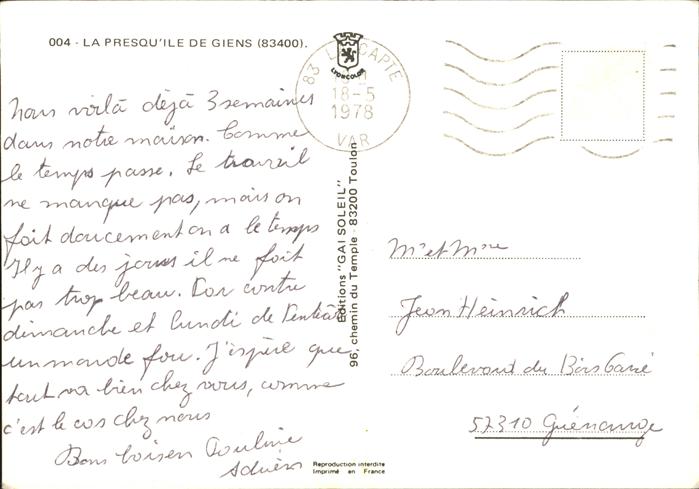 004 - LA PRESQU'ILE DE GIENS (83400).
Nous voilà déjà 3 semaines
dans notre maison. Comme
le temps passe. Le travail
ne manque pas, mais on
fait doucement on a le temps
Il y a des jours il ne fait
pas trop beau. Par contre
dimanche et lundi de Pentecôte
un monde fou. J'espère que
tout va bien chez vous, comme
c'est le cas chez nous
Bons baisers Pauline
LYONCOLOR
83 L CAPTE
18-5
1978
VAR
Editions "GAI SOLEIL"
96, chemin du Temple - 83200 Toulon
Mr et Mme
Jean Heinrich
Boulevard du Bois Carré
57310 Guénange
Reproduction interdite
Imprimé en France